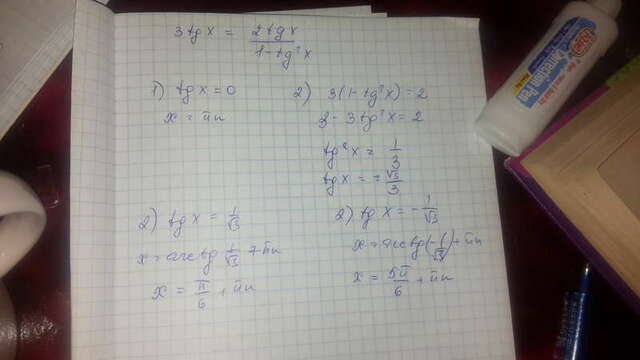 3tgx = 2tgx / 1-tg²x
1) tgx = 0
x = πn
2) 3(1-tg²x) = 2
3 - 3tg²x = 2
tg²x = 1/3
tgx = ±√3/3
2) tgx = 1/√3
x = arctg 1/√3 + πn
x = π/6 + πn
2) tgx = -1/√3
x = arctg(-1/√3) + πn
x = 5π/6 + πn
Correction Pen